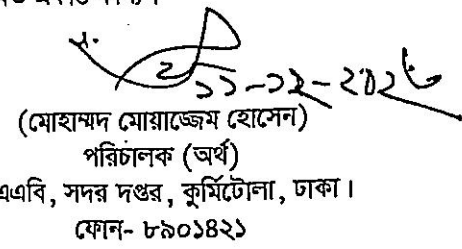 ১১-১২-২০২৮
(মোহাম্মদ মোয়াজ্জেম হোসেন)
পরিচালক (অর্থ)
এএবি, সদর দপ্তর, কুর্মিটোলা, ঢাকা।
ফোন- ৮৯০১৪২১